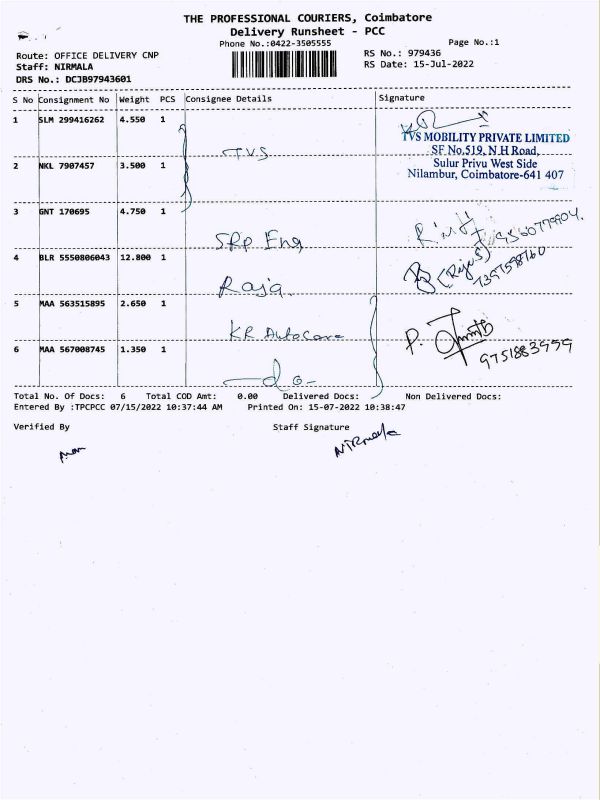 THE PROFESSIONAL COURIERS, Coimbatore
Delivery Runsheet - PCC
Phone No.:0422-3505555
Page No.:1
Route: OFFICE DELIVERY CNP
RS No.: 979436
Staff: NIRMALA
RS Date: 15-Jul-2022
DRS No.: DCJB97943601
S No Consignment No Weight PCS Consignee Details Signature
1 SLM 299416262 4.550 1
TVS
TVS MOBILITY PRIVATE LIMITED
SF No.519, N H Road,
Sulur Privu West Side
Nilambur, Coimbatore-641 407
2 NKL 7907457 3.500 1
3 GNT 170695 4.750 1
SRP Eng
4 BLR 5550806043 12.800 1
Raja
(Riju S)
7397598760
5 MAA 563515895 2.650 1
KR Autocare
P.
9751883999
6 MAA 567008745 1.350 1
-do-
Total No. Of Docs: 6 Total COD Amt: 0.00 Delivered Docs: Non Delivered Docs:
Entered By :TPCPCC 07/15/2022 10:37:44 AM Printed On: 15-07-2022 10:38:47
Verified By Staff Signature
NIRmala